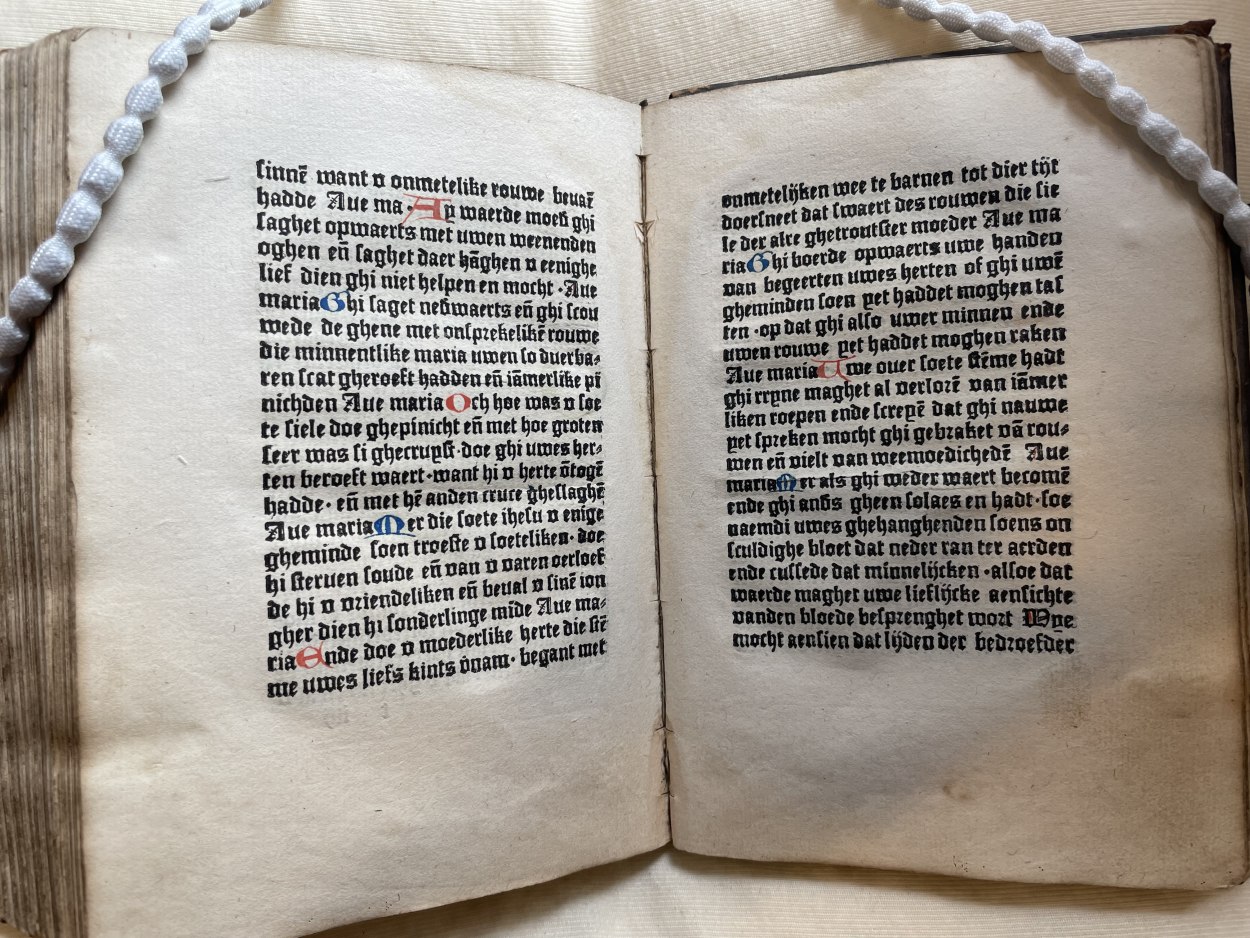 sinnē want v onmetelike rouwe beuāt
hadde Aue ma·Ay waerde moeð ghi
saghet opwaerts met uwen weenenden
oghen eñ saghet daer hāghen v eenighe
lief dien ghi niet helpen en mocht ·Aue
maria Ghi saget neðwaerts eñ ghi scou
wede de ghene met onsprekelikē rouwe
die minnentlike maria uwen so duerba⸗
ren scat gheroeft hadden eñ iāmerlike pi
nichden Aue maria Och hoe was v soe
te siele doe ghepinicht eñ met hoe groten
seer was si ghecruyst·doe ghi uwes her⸗
ten beroeft waert·want hi v herte ōtogē
hadde· eñ met hē anden cruce gheslaghē
Aue maria Mer die soete ihesu v enige
gheminde soen troeste v soeteliken· doe
hi steruen soude eñ van v varen oerloef
de hi v vriendeliken eñ beual v sinē ion
gher dien hi sonderlinge mīde Aue ma⸗
ria Ende doe v moederlike herte die stē
me uwes liefs kints v̄nam· begant met
onmetelijken wee te barnen tot dier tijt
doersneet dat swaert des rouwen die sie
le der alre ghetroutster moeder Aue ma
ria Ghi boerde opwaerts uwe handen
van begeerten uwes herten of ghi uwē
gheminden soen yet haddet moghen tas
ten ·op dat ghi also uwer minnen ende
uwen rouwe yet haddet moghen raken
Aue maria Uwe ouer soete stēme hadt
ghi rryne maghet al verlorē van iāmer
liken roepen ende screyē dat ghi nauwe
yet spreken mocht ghi gebraket vā rou⸗
wen eñ vielt van weemoedichedē Aue
maria Mer als ghi weder waert becomē
ende ghi anðs gheen solaes en hadt·soe
naemdi uwes ghehanghenden soens on
sculdighe bloet dat neder ran ter aerden
ende cussede dat minnelijcken ·alsoe dat
waerde maghet uwe lieflijcke aensichte
vanden bloede besprenghet wort Wye
mocht aensien dat lijden der bedroefder